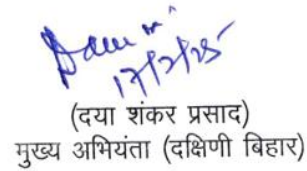 17/2/25
(दया शंकर प्रसाद)
मुख्य अभियंता (दक्षिणी बिहार)